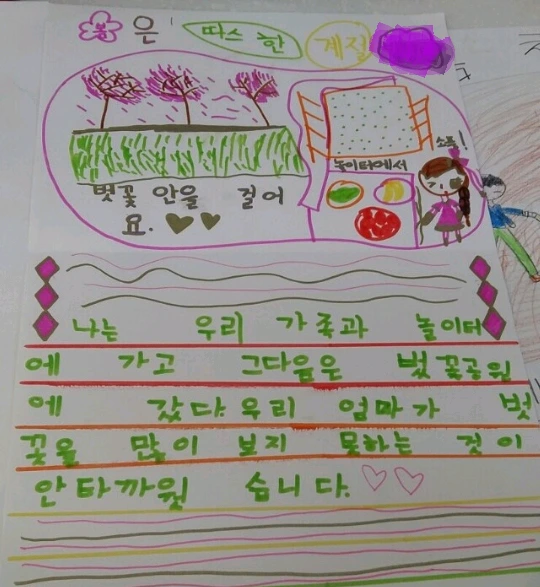 봄은 따스한 계절
소풍!
놀이터에서
벚꽃 안을 걸어
요.
나는 우리 가족과 놀이터
에 가고 그다음은 벚꽃공원
에 갔다우리 엄마가 벗
꽃을 많이 보지 못하는 것이
안타까웠습니다.